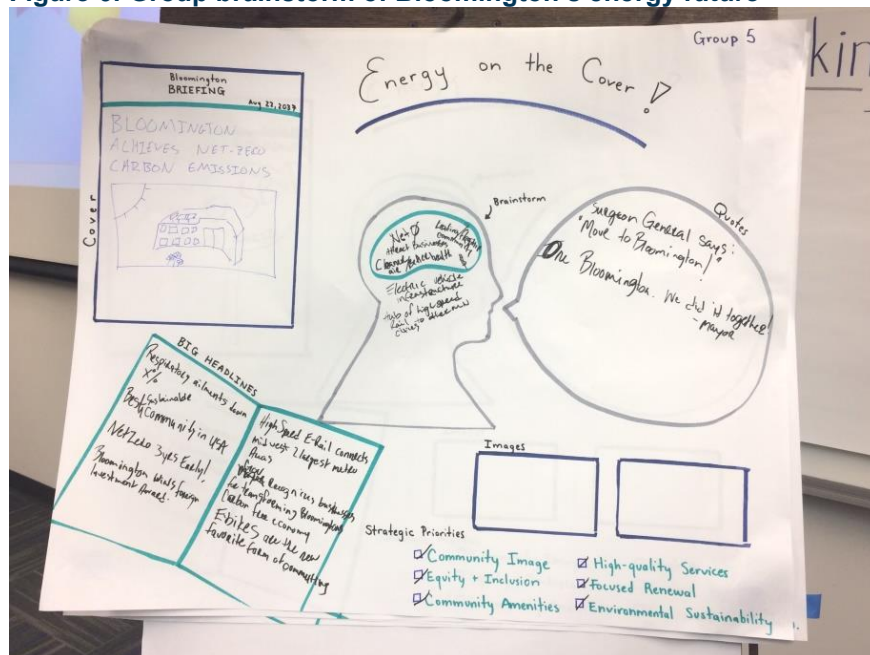 Figure 6. Group brainstorm of Bloomington's energy future
Group 5
kin
Energy on the Cover!
Cover
Bloomington
BRIEFING
Aug 22, 2039
BLOOMINGTON
ACHIEVES NET-ZERO
CARBON EMISSIONS
Brainstorm
Net Ø
Attract businesses
Cleaner air
Electric vehicle
infrastructure
hub of high speed
rail
Quotes
Surgeon General says:
"Move to Bloomington!"
One Bloomington. We did it together!
- Mayor
BIG HEADLINES
Respiratory ailments down
X%
Best Sustainable
Community in USA
Net Zero 3yrs Early!
Bloomington wins foreign
Investment Award.
High Speed E-Rail connects
midwest 2 largest metro
Areas
Recognizes businesses
for transforming Bloomington
Carbon free economy
E-bikes are the new
favorite form of commuting
Images
Strategic Priorities
Community Image
Equity + Inclusion
Community Amenities
High-quality Services
Focused Renewal
Environmental Sustainability